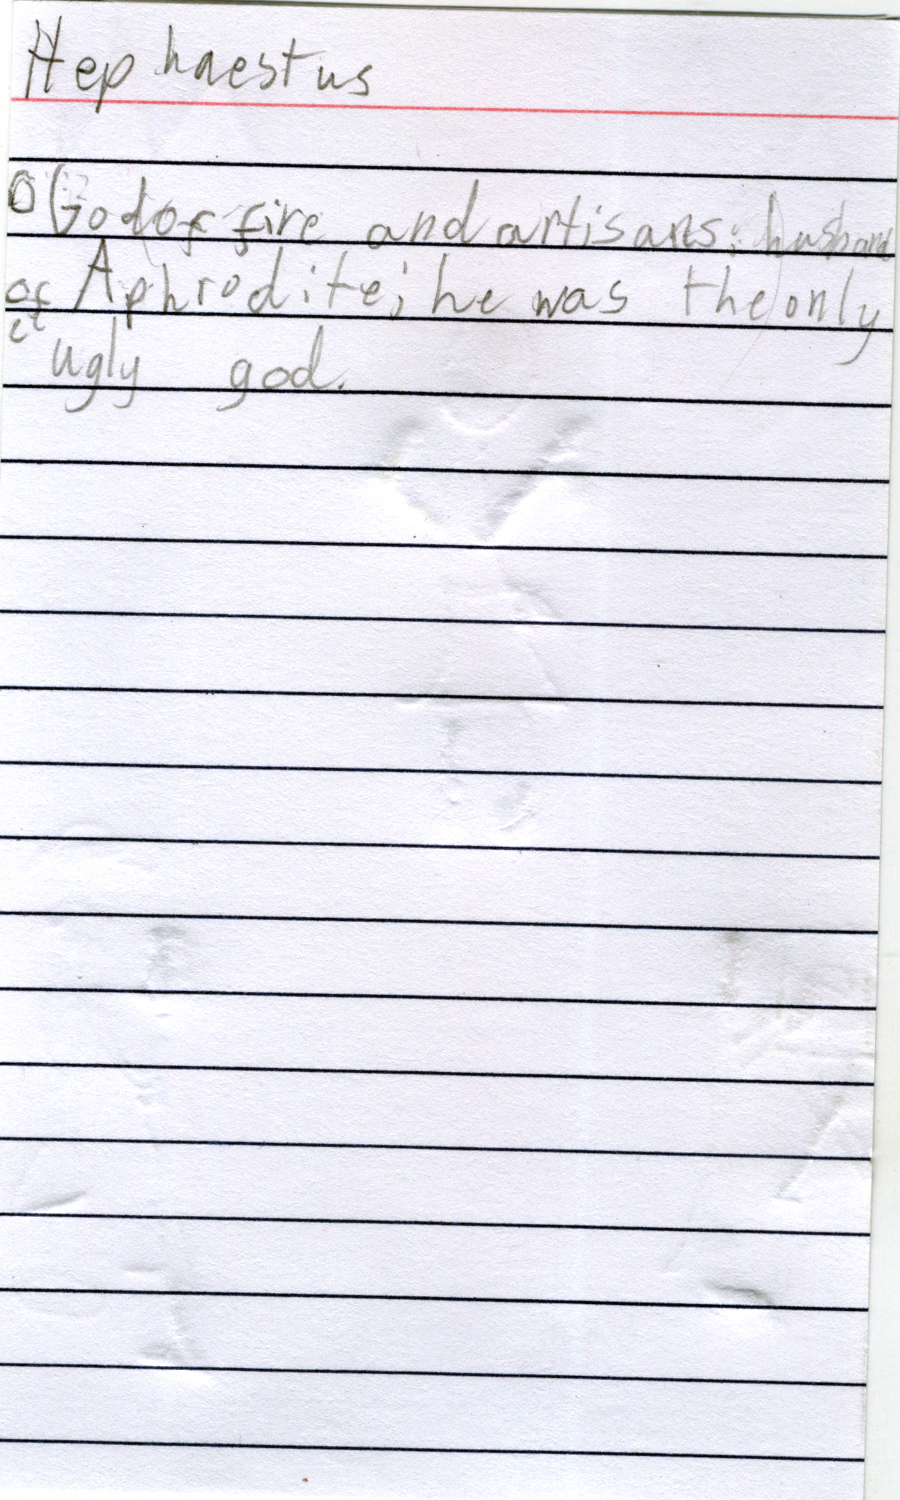 Hephaestus
God of fire and artisans; husband
of Aphrodite; he was the only
ugly god.